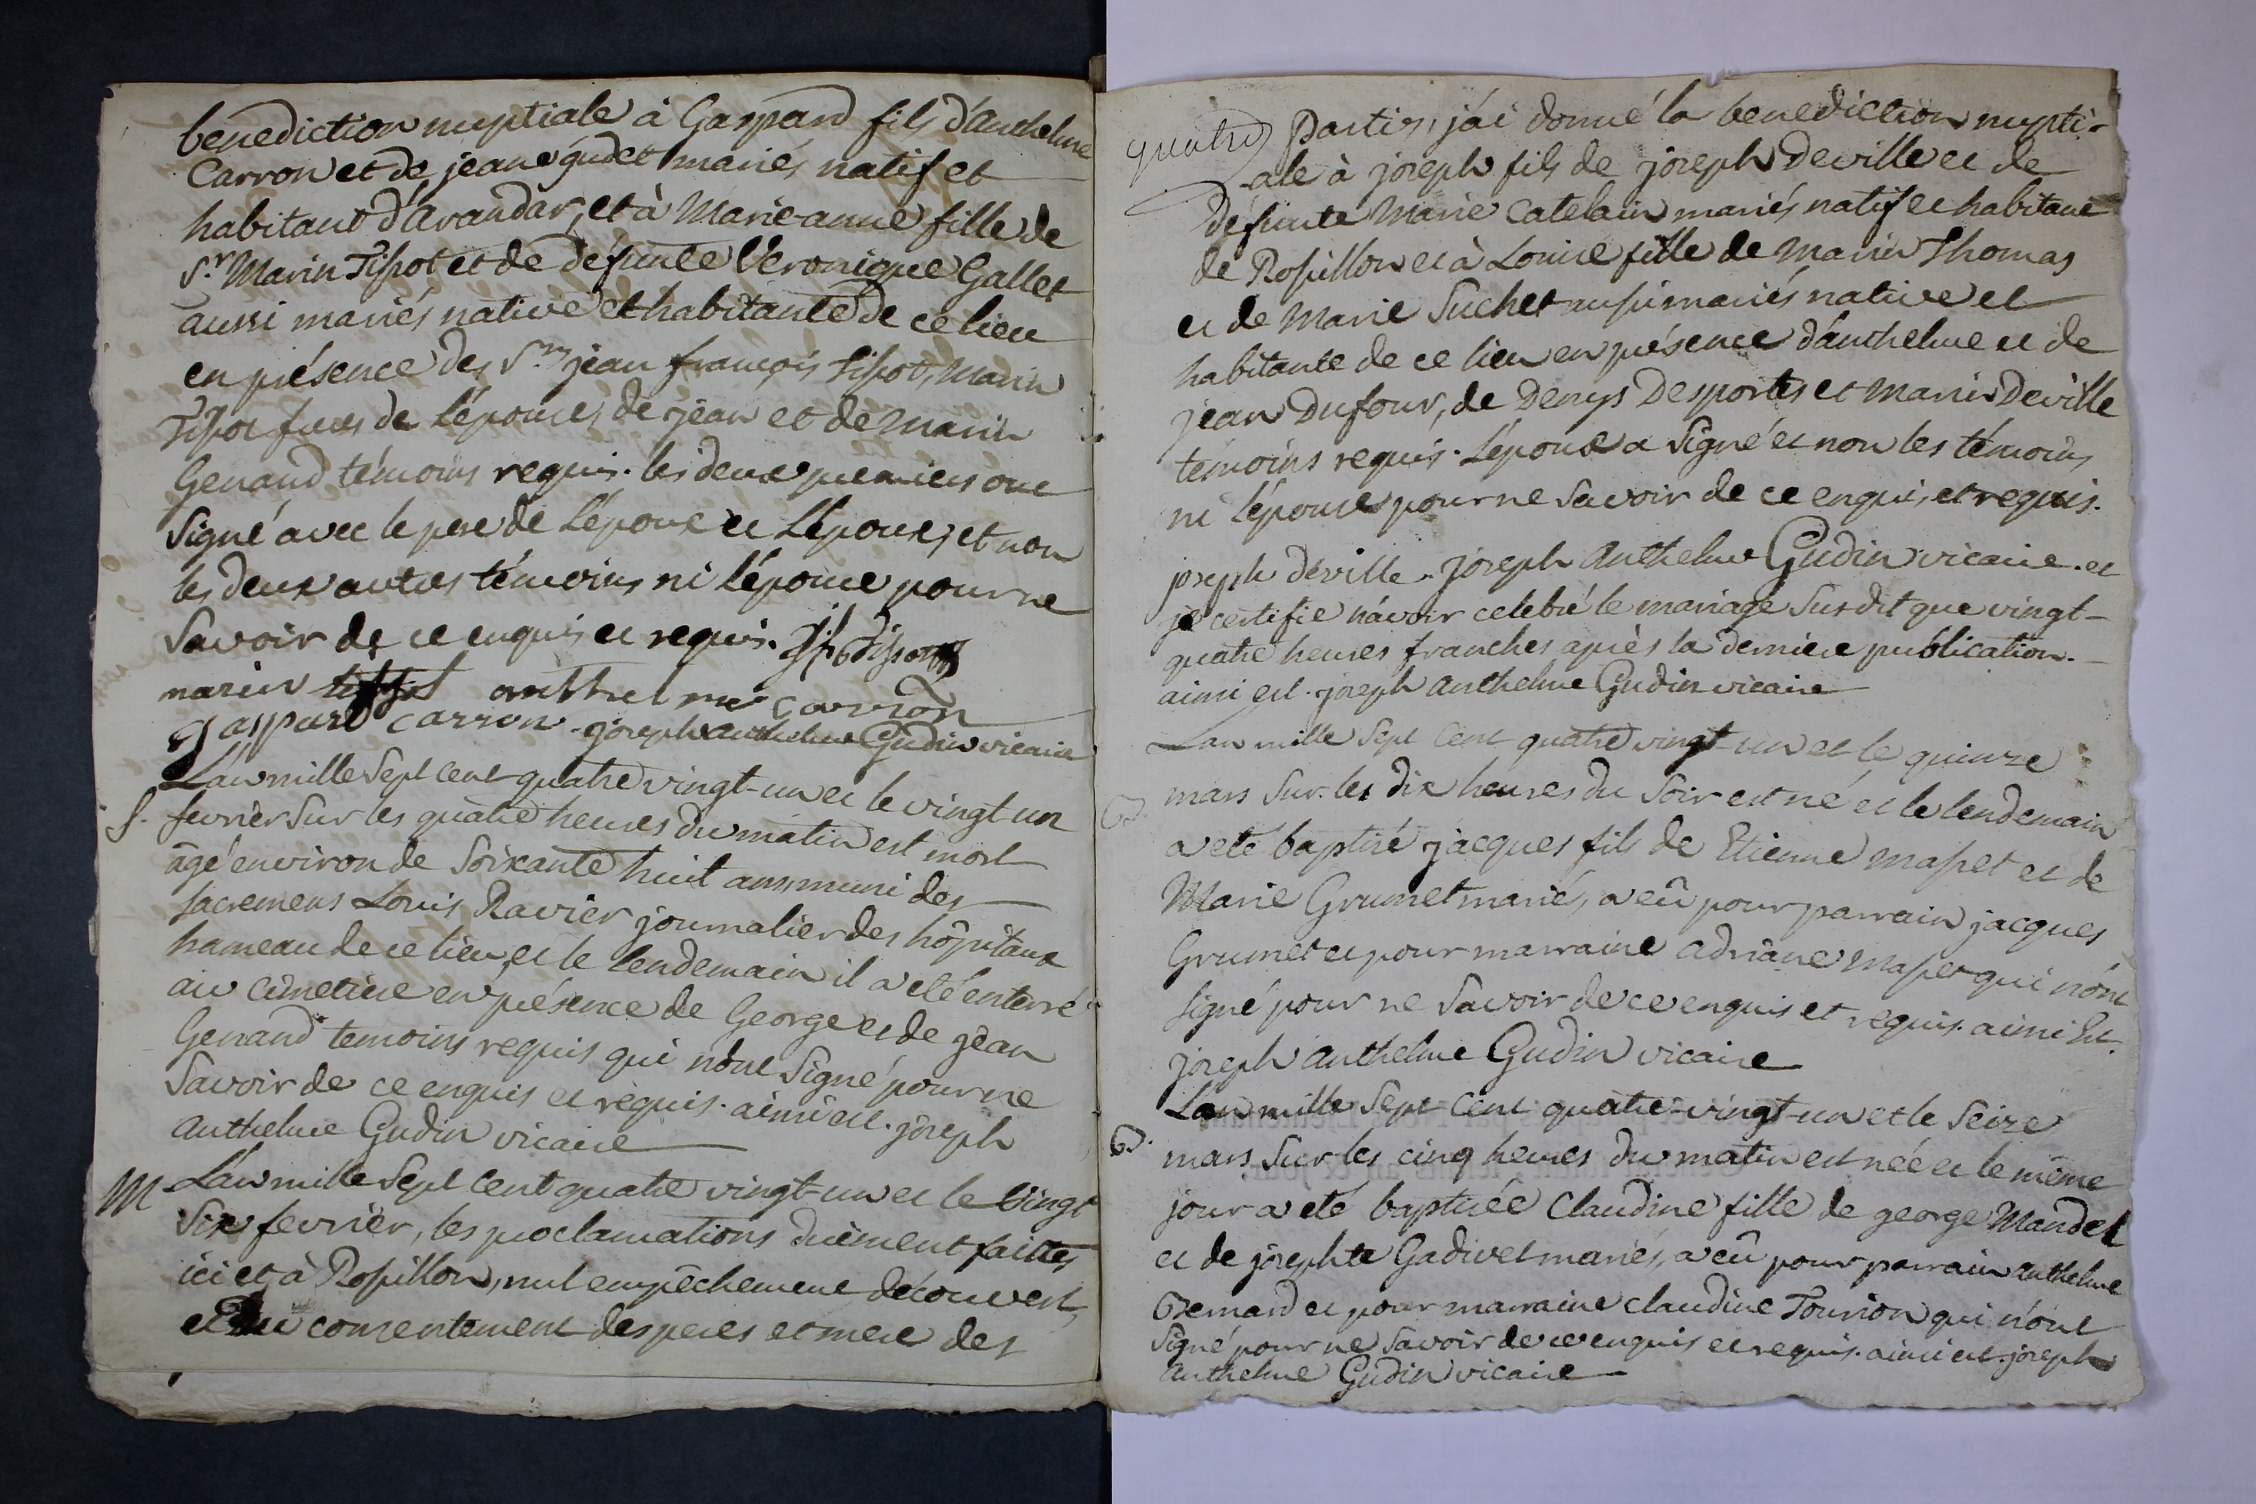 benediction nuptiale à Gaspard fils d'Anthelme
Carron et de jeane gudet mariés natif et
habitant d'Arandas, et à Marie-anne fille de
Sr. Marin Tissot et de défunte Véronique Gallet
aussi mariés native et habitante de ce lieu
en présence des Srs jean françois Tissot, Marin
Tissot freres de l'épouse, de jean et de marin
Genand témoins requis. les deux premiers ont
signé avec le pere de l'époux et l'époux, et non
les deux autres témoins ni l'épouse pour ne
savoir de ce enquis et requis.
marin tissot anthelme carron
gaspard carron - joseph anthelme Gudin vicaire
L'an mille sept cent quatre vingt-un et le vingt un
S. fevrier sur les quatre heures du matin est mort
âgé environ de soixante huit ans, muni des
sacremens Louis Ravier journalier des hôpitaux
hameau de ce lieu, et le lendemain il a eté enterré
au cimetiere en présence de George et de jean
Genand temoins requis qui n'ont signé pour ne
savoir de ce enquis et requis. ainsi est. joseph
anthelme Gudin vicaire
M L'an mille sept cent quatre vingt-un et le vingt
six fevrier, les proclamations duement faittes
ici et à Rossillon, nul empêchement découvert,
et du consentement des peres et mere des
quatre Parties, j'ai donné la benediction nupti-
ale à joseph fils de joseph Deville et de
défunte Marie Catelain mariés natif et habitant
de Rossillon et à Louise fille de Marin Thomas
et de Marie Suchet aussi mariés native et
habitante de ce lieu en présence d'anthelme et de
jean Dufour, de Denys Desportes et Marin Deville
témoins requis. L'époux a signé et non les témoins
ni l'épouse pour ne savoir de ce enquis, et requis.
joseph déville. joseph anthelme Gudin vicaire. et
je certifie n'avoir celebré le mariage susdit que vingt-
quatre heures franches après la derniere publication.
ainsi est. joseph anthelme Gudin vicaire
L'an mille sept cent quatre vingt-un et le quinze
mars sur les dix heures du soir est né et le lendemain
a eté baptisé jacques fils de Etienne Masset et de
Marie Grumet mariés, a eû pour parrain jacques
Grumet et pour marraine adriane Masset qui n'ont
signé pour ne savoir de ce enquis et requis. ainsi est.
joseph anthelme Gudin vicaire
L'an mille sept cent quatre-vingt-un et le seize
B. mars sur les cinq heures du matin est née et le même
jour a eté baptisée Claudine fille de george Mandel
et de josephte Gadivet mariés, a eû pour parrain anthelme
Bernard et pour marraine claudine Tournon qui n'ont
signé pour ne savoir de ce enquis et requis. ainsi est. joseph
anthelme Gudin vicaire